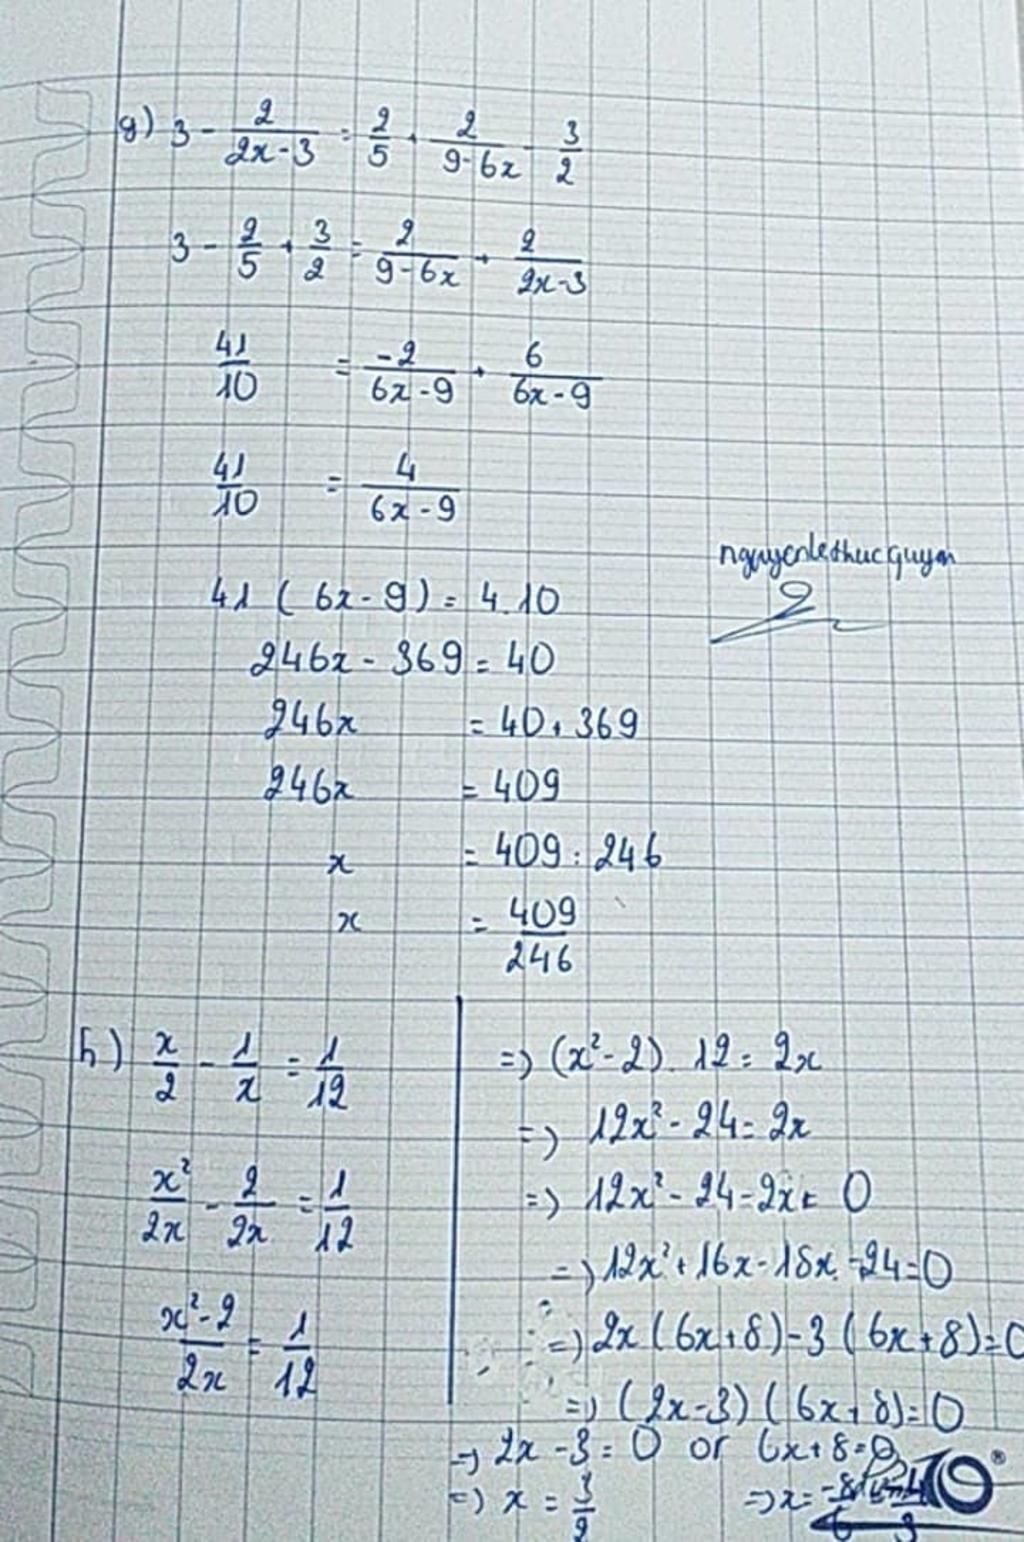 g) 3 - 2/(2x-3) = 2/5 + 2/(9-6x) - 3/2
3 - 2/5 + 3/2 = 2/(9-6x) + 2/(2x-3)
41/10 = -2/(6x-9) + 6/(6x-9)
41/10 = 4/(6x-9)
nguyenlethucquyen
41 (6x-9) = 4.10
246x - 369 = 40
246x = 40 + 369
246x = 409
x = 409 : 246
x = 409/246
h) x/2 - 1/x = 1/12
x²/2x - 2/2x = 1/12
(x²-2)/2x = 1/12
=> (x²-2).12 = 2x
=> 12x² - 24 = 2x
=> 12x² - 24 - 2x = 0
=> 12x² + 16x - 18x - 24 = 0
=> 2x (6x+8) - 3 (6x+8) = 0
=> (2x-3) (6x+8) = 0
=> 2x - 3 = 0 or 6x + 8 = 0
=> x = 3/2 => x = -8/6 = -4/3